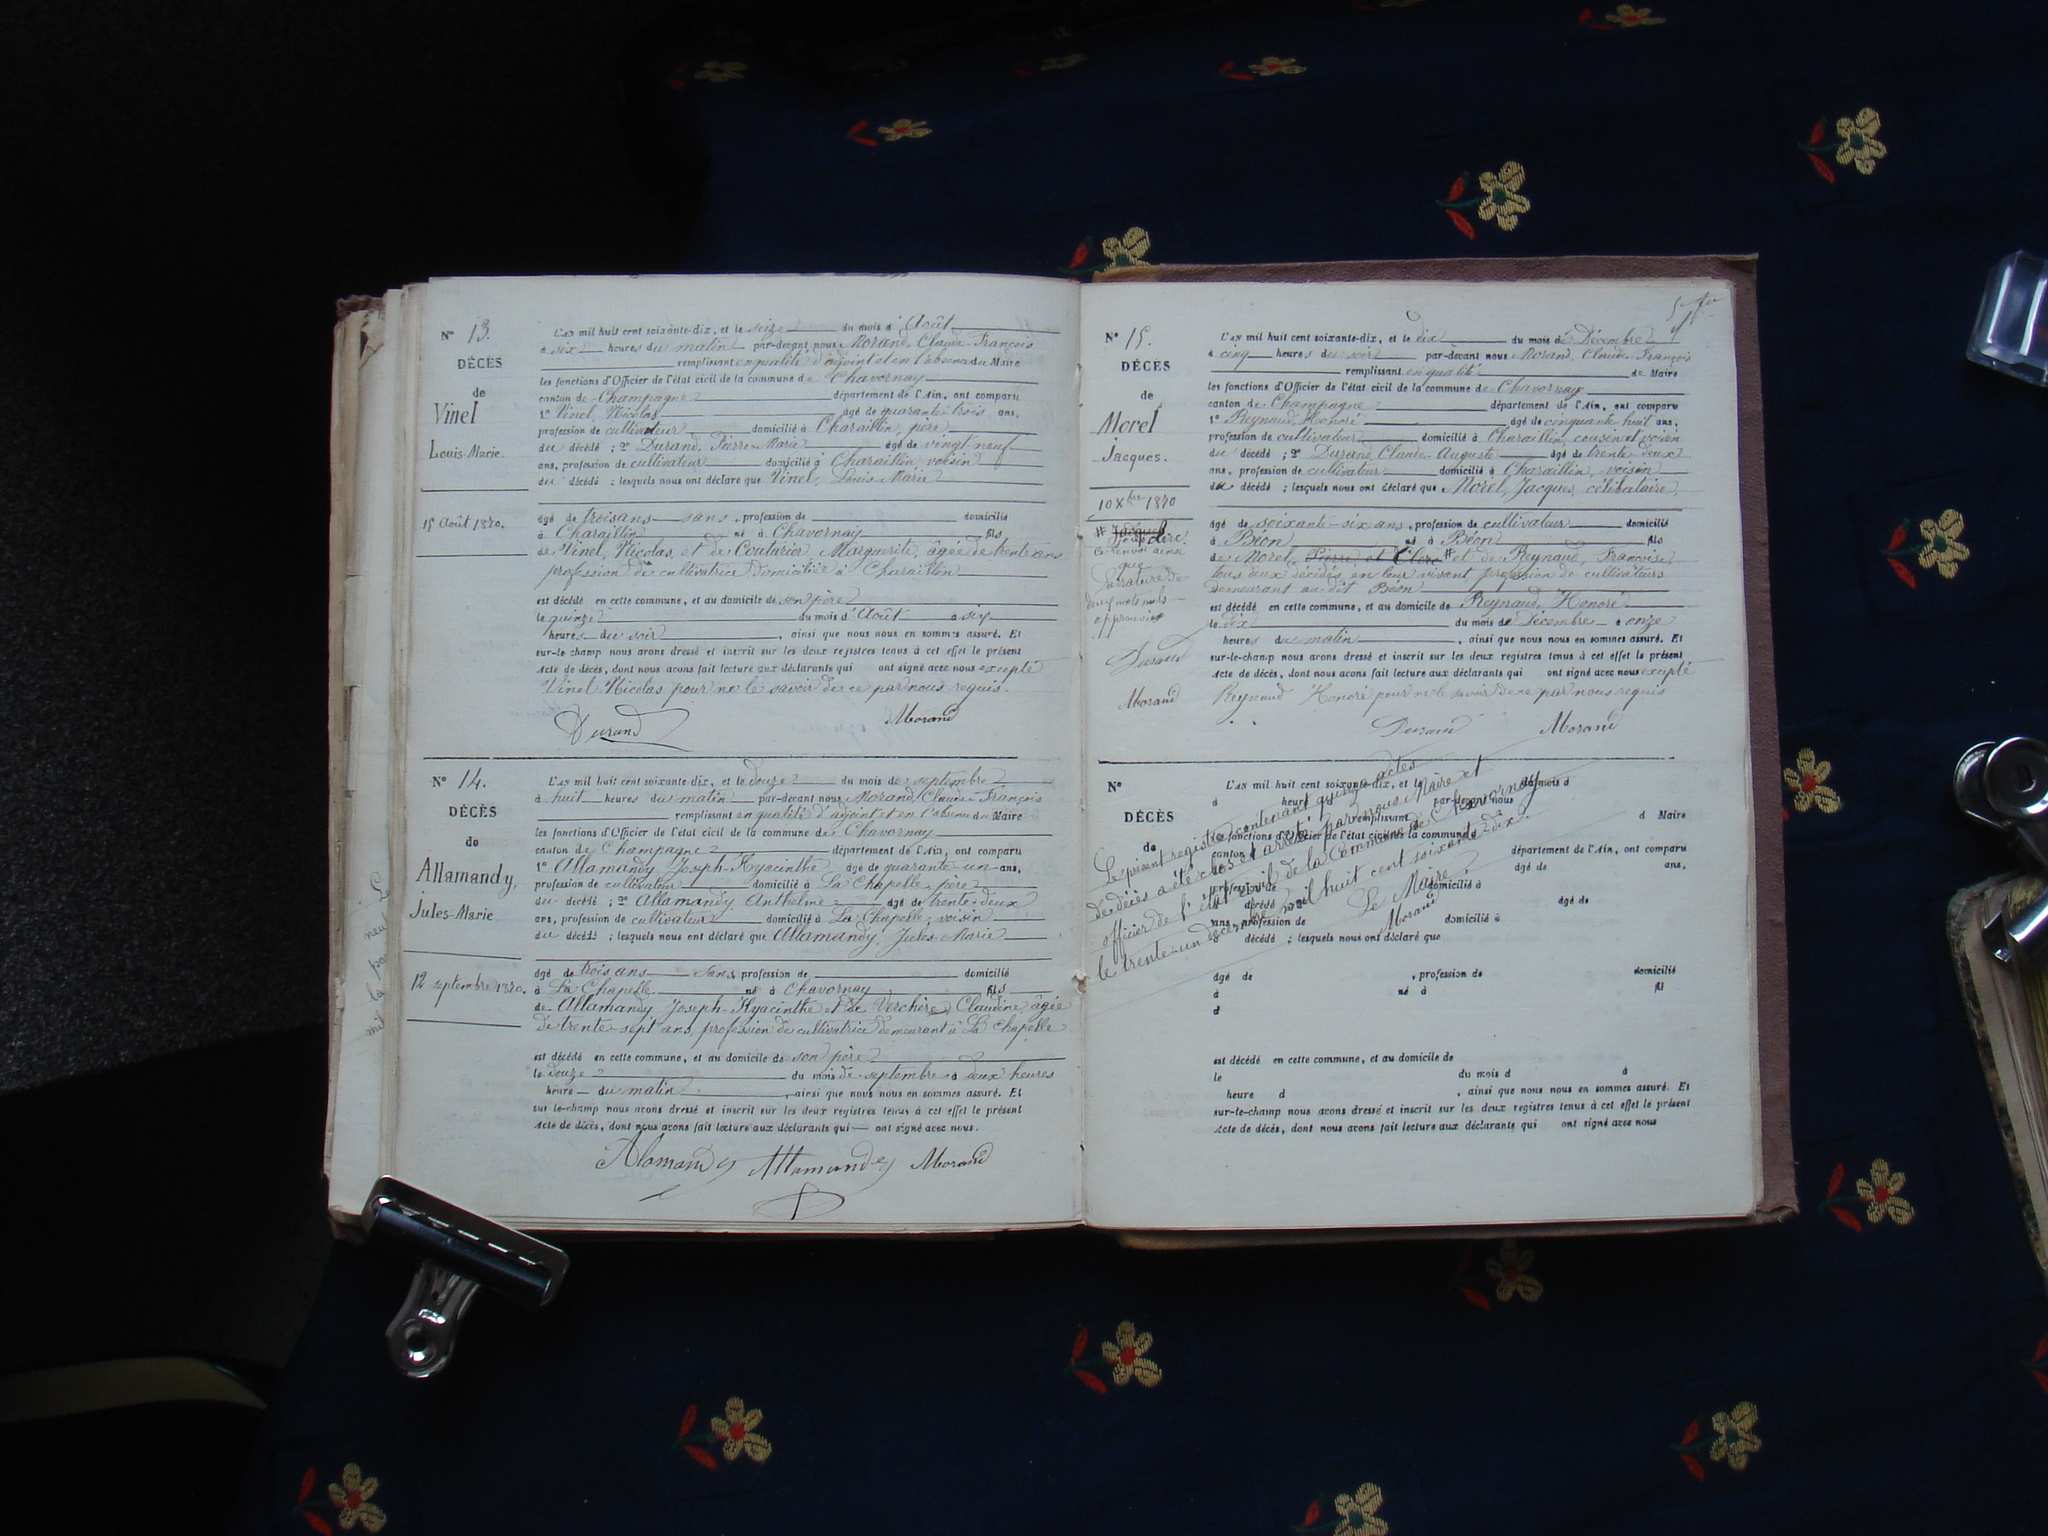 N° 13.
DÉCÈS
de
Vinel
Louis-Marie.
15 Août 1870.
L'AN mil huit cent soixante-dix, et le seize du mois d'Août
à six heures du matin par-devant nous Morand, Claude-François
remplissant en qualité d'adjoint et en l'absence du Maire
les fonctions d'Officier de l'état civil de la commune de Chavornay
canton de Champagne département de l'Ain, ont comparu
1° Vinel, Nicolas âgé de quarante-trois ans,
profession de cultivateur domicilié à Charaillin, père
du décédé ; 2° Durand, Pierre-Marie âgé de vingt neuf
ans, profession de cultivateur domicilié à Charaillin, voisin
du décédé ; lesquels nous ont déclaré que Vinel, Louis-Marie
âgé de trois ans sans, profession de domicilié
à Charaillin né à Chavornay fils
de Vinel, Nicolas, et de Couturier, Marguerite, âgée de trente ans
profession de cultivatrice domiciliée à Charaillin
est décédé en cette commune, et au domicile de son père
le quinze du mois d'Août à six
heures du soir, ainsi que nous nous en sommes assuré. Et
sur-le-champ nous avons dressé et inscrit sur les deux registres tenus à cet effet le présent
Acte de décès, dont nous avons fait lecture aux déclarants qui ont signé avec nous excepté
Vinel Nicolas pour ne le savoir de ce par nous requis.
Durand Morand
N° 14.
DÉCÈS
de
Allamandy,
Jules-Marie
12 septembre 1870.
L'AN mil huit cent soixante-dix, et le douze du mois de septembre
à huit heures du matin par-devant nous Morand, Claude-François
remplissant en qualité d'adjoint et en l'absence du Maire
les fonctions d'Officier de l'état civil de la commune de Chavornay
canton de Champagne département de l'Ain, ont comparu
1° Allamandy Joseph-Hyacinthe âgé de quarante-un ans,
profession de cultivateur domicilié à La Chapelle, père
du décédé ; 2° Allamandy Anthelme âgé de trente-deux
ans, profession de cultivateur domicilié à La Chapelle, voisin
du décédé ; lesquels nous ont déclaré que Allamandy, Jules-Marie
âgé de trois ans sans profession de domicilié
à La Chapelle né à Chavornay fils
de Allamandy Joseph-Hyacinthe et de Verchère, Claudine âgée
de trente-sept ans, profession de cultivatrice demeurant à La Chapelle
est décédé en cette commune, et au domicile de son père
le douze du mois de septembre à deux heures
heure du matin, ainsi que nous nous en sommes assuré. Et
sur-le-champ nous avons dressé et inscrit sur les deux registres tenus à cet effet le présent
Acte de décès, dont nous avons fait lecture aux déclarants qui ont signé avec nous.
Alamandy Allamandy Morand
N° 15.
DÉCÈS
de
Morel
Jacques.
10 Xbre 1870
# Jacques
Joseph clerc.
ce renvoi ainsi
que
la rature de
deux mots nuls
approuvés
Durand
Morand
L'AN mil huit cent soixante-dix, et le dix du mois de Décembre
à cinq heures du soir par-devant nous Morand, Claude François
remplissant en qualité de Maire
les fonctions d'Officier de l'état civil de la commune de Chavornay
canton de Champagne département de l'Ain, ont comparu
1° Reynaud, Honoré âgé de cinquante huit ans,
profession de cultivateur domicilié à Charaillin, cousin et voisin
du décédé ; 2° Durand, Claude-Auguste âgé de trente-deux
ans, profession de cultivateur domicilié à Charaillin, voisin
du décédé ; lesquels nous ont déclaré que Morel, Jacques, célibataire,
âgé de soixante-six ans, profession de cultivateur domicilié
à Béon né à Béon fils
de Morel, Pierre et Clerc # et de Reynaud, Françoise,
tous deux décédés en leur vivant profession de cultivateurs
demeurant au dit Béon
est décédé en cette commune, et au domicile de Reynaud, Honoré
le dix du mois de Décembre à onze
heures du matin, ainsi que nous nous en sommes assuré. Et
sur-le-champ nous avons dressé et inscrit sur les deux registres tenus à cet effet le présent
Acte de décès, dont nous avons fait lecture aux déclarants qui ont signé avec nous excepté
Reynaud Honoré pour ne le savoir de ce par nous requis
Durand Morand
N°
DÉCÈS
de
L'AN mil huit cent soixante-dix, et le du mois d
à heure d par-devant nous
remplissant d Maire
les fonctions d'Officier de l'état civil de la commune d
canton d département de l'Ain, ont comparu
1° âgé de ans,
profession de domicilié à
d décédé ; 2° âgé de
ans, profession de domicilié à
d décédé ; lesquels nous ont déclaré que
Le présent registre contenant quinze actes
de décès a été clos et arrêté par nous Maire et
officier de l'état civil de la Commune de Chavornay
le trente-un décembre mil huit cent soixante dix.
Le Maire
Morand
âgé de, profession de domicilié
à né à fil
d
est décédé en cette commune, et au domicile de
le du mois d à
heure d, ainsi que nous nous en sommes assuré. Et
sur-le-champ nous avons dressé et inscrit sur les deux registres tenus à cet effet le présent
Acte de décès, dont nous avons fait lecture aux déclarants qui ont signé avec nous